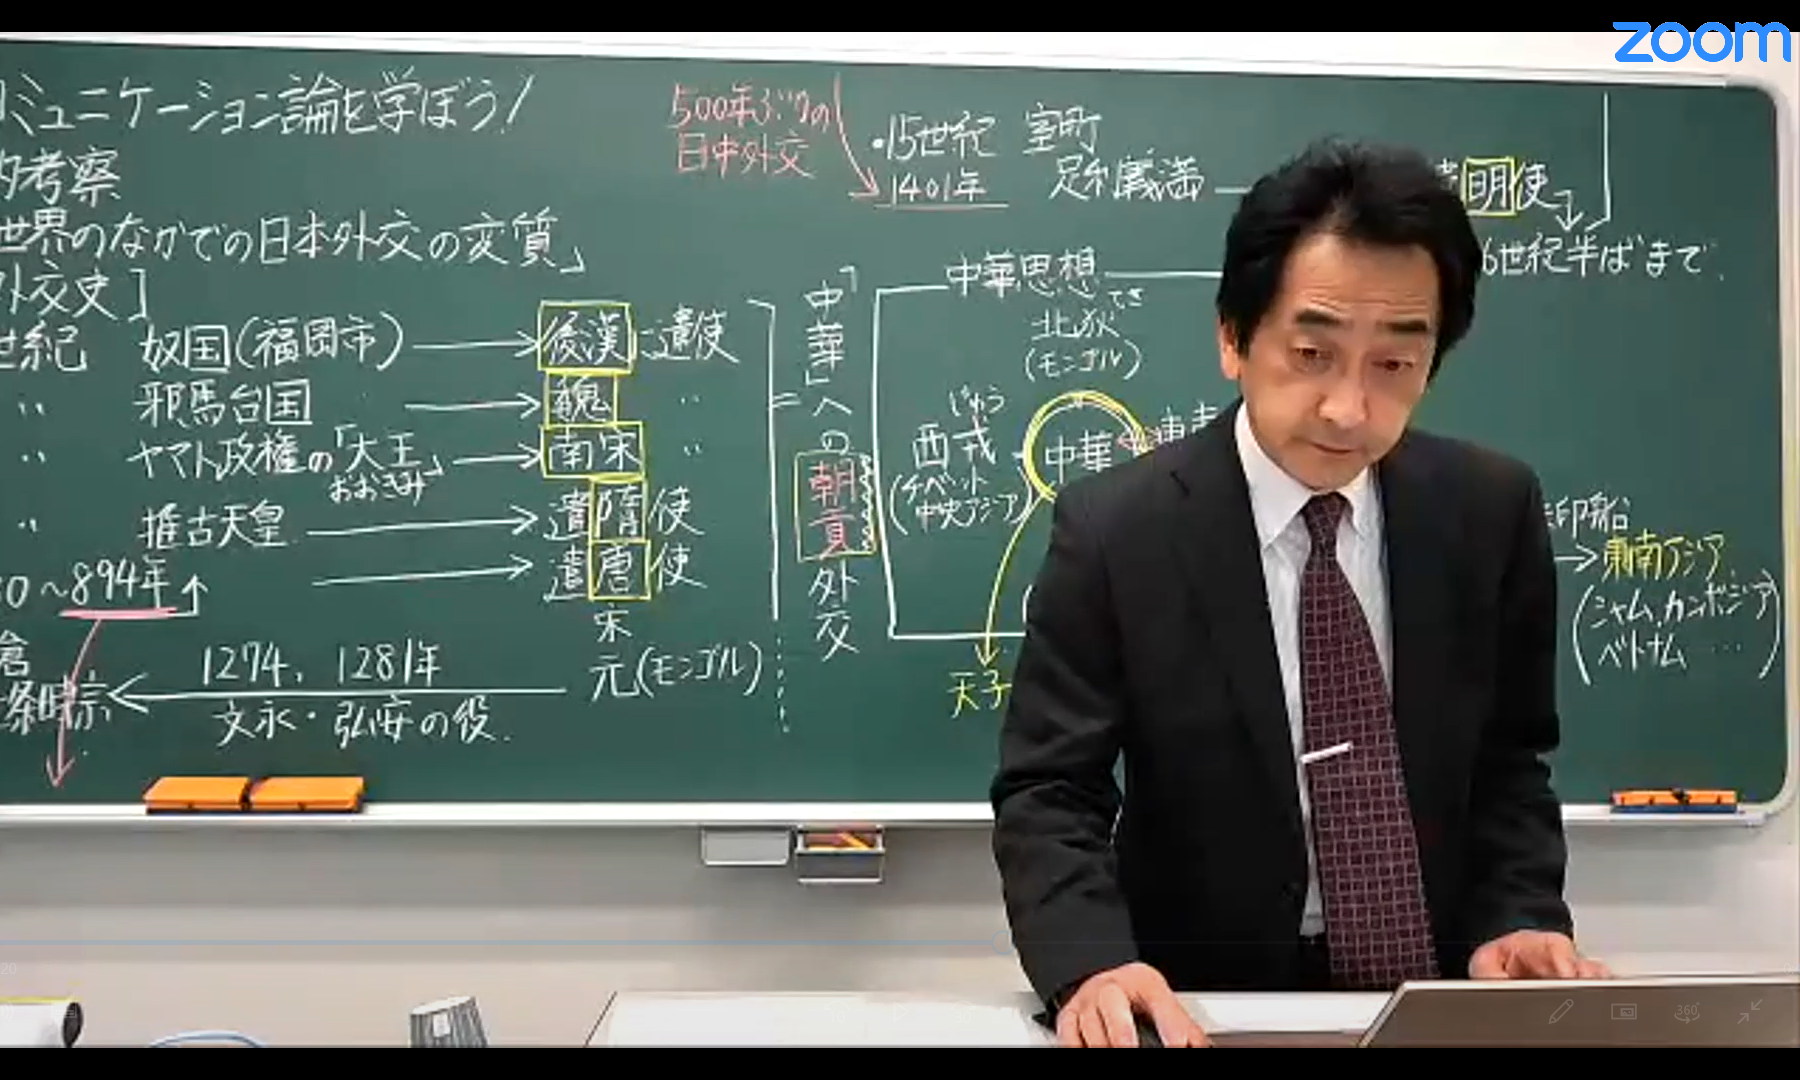 コミュニケーション論を学ぼう!
的考察
世界のなかでの日本外交の変質」
外交史]
世紀 奴国(福岡市) → 後漢に遣使
〃 邪馬台国 → 魏 〃
〃 ヤマト政権の「大王」 → 南宋 〃
おおきみ
〃 推古天皇 → 遣隋使
0〜894年↑ → 遣唐使
宋
倉
条時宗 ← 1274、1281年 元(モンゴル)
文永・弘安の役.
「中華」への朝貢外交
500年ぶりの
日中外交
・15世紀 室町
1401年 足利義満
明使
6世紀半ばまで
中華思想
てき
北狄
(モンゴル)
じゅう
西戎
(チベット
中央アジア)
中華
東
天子
印船
→東南アジア
(シャム,カンボジア
ベトナム…)
zoom
360°